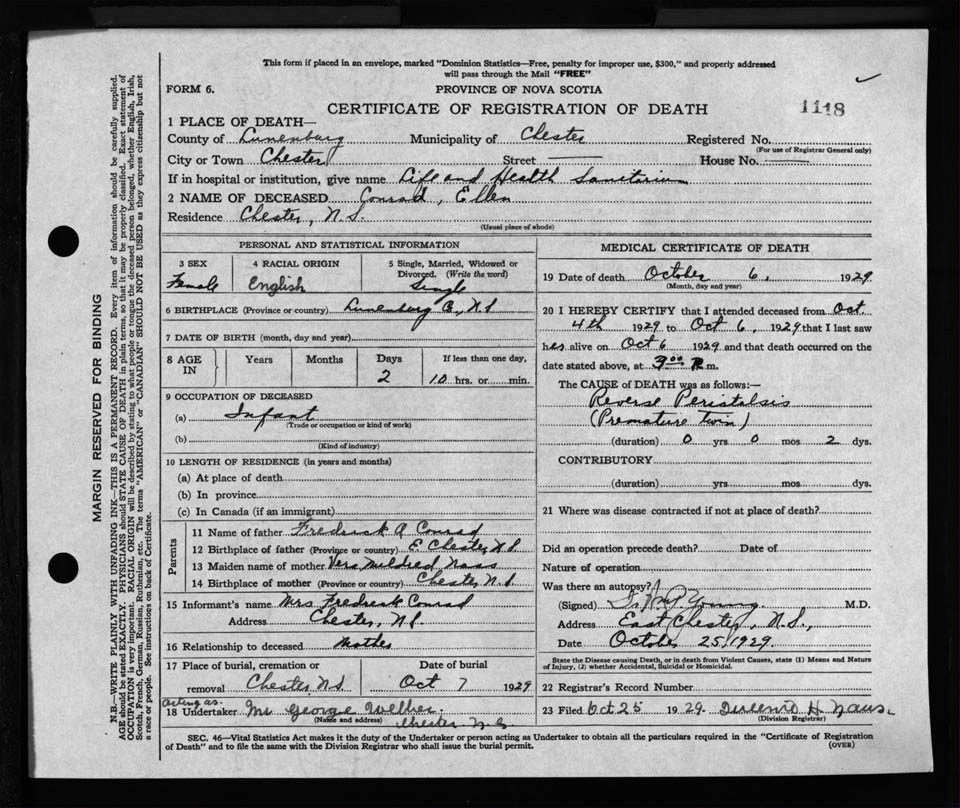 This form if placed in an envelope, marked "Dominion Statistics—Free, penalty for improper use, $300," and properly addressed
will pass through the Mail "FREE"
FORM 6.
PROVINCE OF NOVA SCOTIA
CERTIFICATE OF REGISTRATION OF DEATH
1118
1 PLACE OF DEATH—
County of Lunenburg Municipality of Chester Registered No.
(For use of Registrar General only)
City or Town Chester Street — House No. —
If in hospital or institution, give name Life and Health Sanitarium
2 NAME OF DECEASED Conrad, Ellen
Residence Chester, N.S.
(Usual place of abode)
MARGIN RESERVED FOR BINDING
N.B.—WRITE PLAINLY WITH UNFADING INK—THIS IS A PERMANENT RECORD. Every item of information should be carefully supplied.
AGE should be stated EXACTLY. PHYSICIANS should STATE CAUSE OF DEATH in plain terms, so that it may be properly classified. Exact statement of
OCCUPATION is very important. RACIAL ORIGIN will be described by stating to what people or tongue the deceased person belonged, whether English, Irish,
Scotch, French, German, Russian, Ruthenian, etc. The terms "AMERICAN" or "CANADIAN" SHOULD NOT BE USED as they express citizenship but not
a race or people. See instructions on back of Certificate.
PERSONAL AND STATISTICAL INFORMATION
3 SEX
Female
4 RACIAL ORIGIN
English
5 Single, Married, Widowed or
Divorced. (Write the word)
Single
6 BIRTHPLACE (Province or country) Lunenburg Co, N.S
7 DATE OF BIRTH (month, day and year)
8 AGE
IN
Years
Months
Days
2
If less than one day,
10 hrs. or min.
9 OCCUPATION OF DECEASED
(a) Infant
(Trade or occupation or kind of work)
(b)
(Kind of industry)
10 LENGTH OF RESIDENCE (in years and months)
(a) At place of death
(b) In province
(c) In Canada (if an immigrant)
Parents
11 Name of father Frederick A Conrad
12 Birthplace of father (Province or country) E. Chester, N.S.
13 Maiden name of mother Vera Mildred
14 Birthplace of mother (Province or country) Chester N.S
15 Informant's name Mrs Frederick Conrad
Address Chester, N.S.
16 Relationship to deceased Mother
17 Place of burial, cremation or
removal Chester N.S.
Date of burial
Oct 7 1929
acting as
18 Undertaker Mr George
(Name and address)
Chester N.S
MEDICAL CERTIFICATE OF DEATH
19 Date of death October 6, 1929
(Month, day and year)
20 I HEREBY CERTIFY that I attended deceased from Oct.
4th 1929 to Oct 6, 1929 that I last saw
her alive on Oct 6 1929 and that death occurred on the
date stated above, at m.
The CAUSE of DEATH was as follows:—
Reverse Peristalsis
(Premature twin)
(duration) 0 yrs 0 mos 2 dys.
CONTRIBUTORY
(duration) yrs. mos. dys.
21 Where was disease contracted if not at place of death?
Did an operation precede death? Date of
Nature of operation
Was there an autopsy?
(Signed) Young M.D.
Address East Chester, N.S.,
Date October 25, 1929.
State the Disease causing Death, or in death from Violent Causes, state (1) Means and Nature
of Injury, (2) whether Accidental, Suicidal or Homicidal.
22 Registrar's Record Number
23 Filed Oct 25 1929.
(Division Registrar)
SEC. 46—Vital Statistics Act makes it the duty of the Undertaker or person acting as Undertaker to obtain all the particulars required in the "Certificate of Registration
of Death" and to file the same with the Division Registrar who shall issue the burial permit.
(OVER)